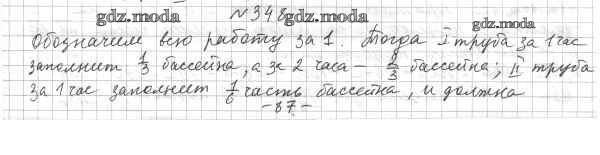 gdz.moda №348 gdz.moda
Обозначим всю работу за 1. Тогда I труба за 1 час gdz.moda
заполнит 1/3 бассейна, а за 2 часа – 2/3 бассейна; II труба
за 1 час заполнит 1/6 часть бассейна, и должна
-87-